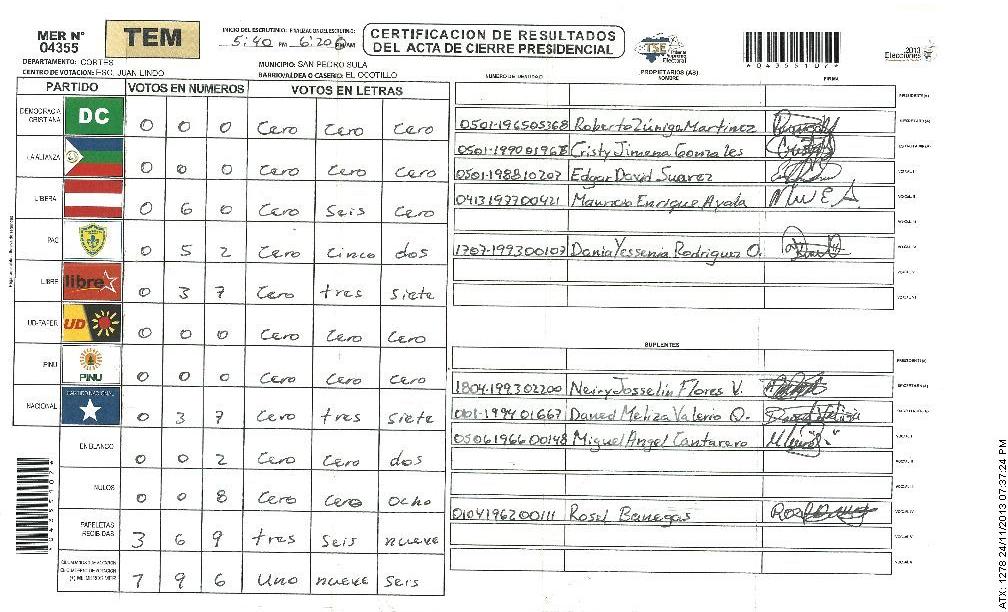 MER N° 04355
TEM
INICIO DEL ESCRUTINIO: FINALIZACION DEL ESCRUTINIO:
5:40 PM 6:20 PM AM
CERTIFICACION DE RESULTADOS
DEL ACTA DE CIERRE PRESIDENCIAL
TSE Tribunal Supremo Electoral
2013 Elecciones
DEPARTAMENTO: CORTES
MUNICIPIO: SAN PEDRO SULA
CENTRO DE VOTACION: ESC. JUAN LINDO
BARRIO/ALDEA O CASERIO: EL OCOTILLO
PARTIDO VOTOS EN NUMEROS VOTOS EN LETRAS
DEMOCRACIA CRISTIANA DC 0 0 0 Cero Cero Cero
LA ALIANZA 0 0 0 Cero Cero Cero
LIBERA 0 6 0 Cero Seis Cero
PAC 0 5 2 Cero Cinco dos
LIBRE libre 0 3 7 Cero tres Siete
UD-FAPER UD 0 0 0 Cero Cero Cero
PINU PINU 0 0 0 Cero Cero Cero
NACIONAL PARTIDO NACIONAL 0 3 7 Cero tres Siete
EN BLANCO 0 0 2 Cero Cero dos
NULOS 0 0 8 Cero Cero ocho
PAPELETAS RECIBIDAS 3 6 9 tres Seis nueve
7 9 6 Uno nueve Seis
NUMERO DE IDENTIDAD PROPIETARIOS (AS) NOMBRE FIRMA
PRESIDENTE(A)
0501-196505368 Roberto Zúniga Martinez SECRETARIO(A)
0501-199001968 Cristy Jimena Gonzales
0501-198810207 Edgar David Suarez VOCAL I
0413197700421 Mauricio Enrique Ayala VOCAL II
VOCAL III
1707-199300107 Dania Yessenia Rodriguez O. VOCAL IV
VOCAL V
VOCAL VI
SUPLENTES
PRESIDENTE(A)
1804-199302200 Neiry Josselin Flores V. SECRETARIO(A)
Meliza Valerio O.
0506196600148 Miguel Angel Cantarero VOCAL I
VOCAL II
VOCAL III
0104196200111 Rosel Banegas VOCAL IV
VOCAL V
VOCAL VI
ATX: 1278 24/11/2013 07:37:24 PM